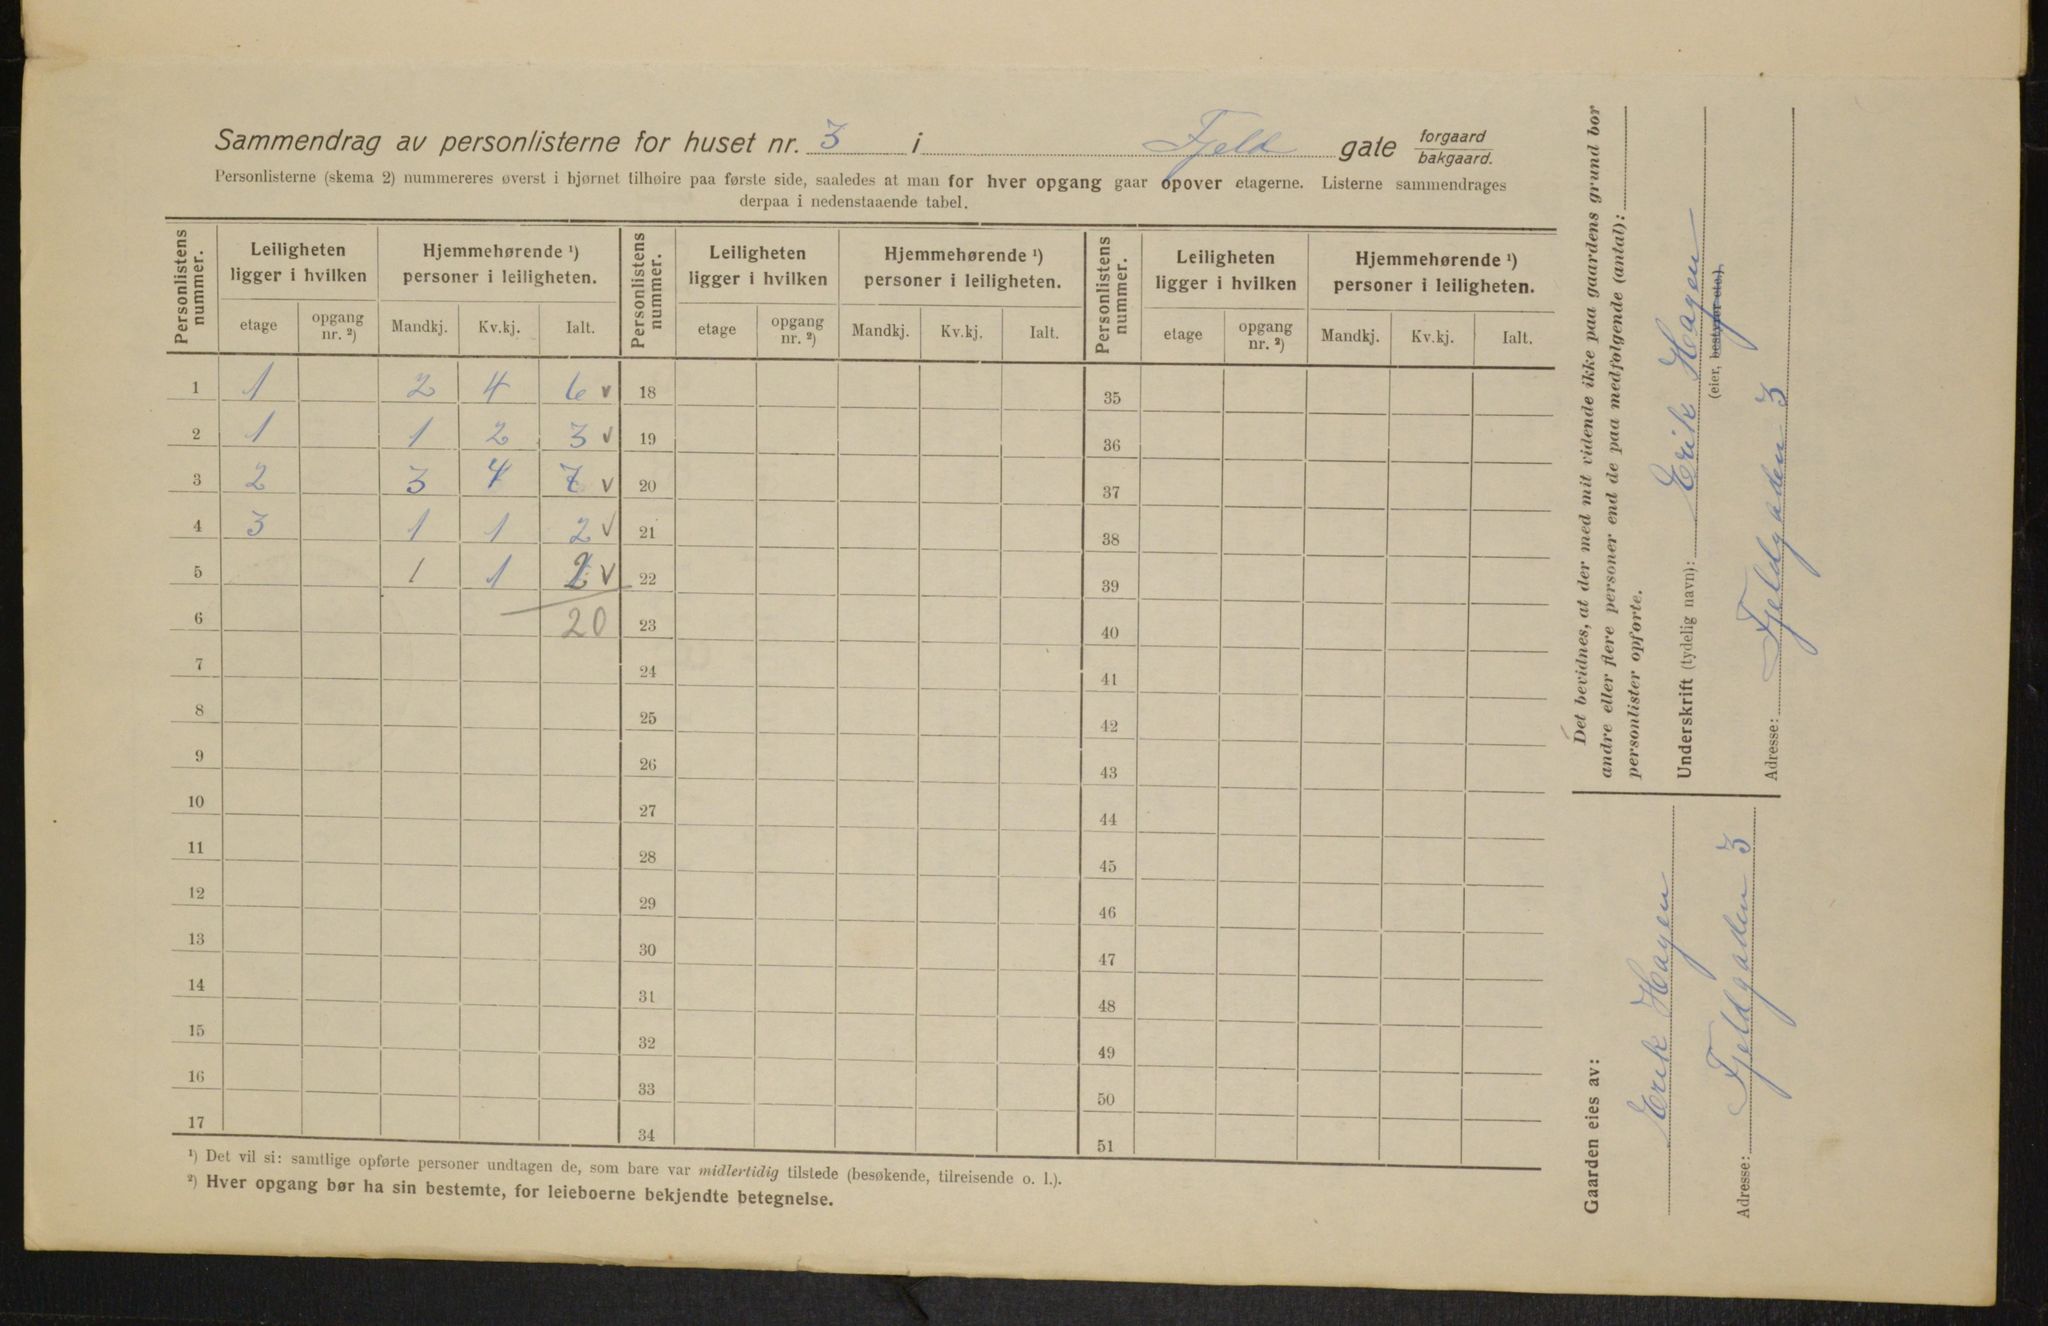 Sammendrag av personlisterne for huset nr. 3 i Fjeld gate forgaard bakgaard.
Personlisterne (skema 2) nummereres øverst i hjørnet tilhøire paa første side, saaledes at man for hver opgang gaar opover etagerne. Listerne sammendrages
derpaa i nedenstaaende tabel.
Personlistens nummer. Leiligheten ligger i hvilken Hjemmehørende ¹) personer i leiligheten. Personlistens nummer. Leiligheten ligger i hvilken Hjemmehørende ¹) personer i leiligheten. Personlistens nummer. Leiligheten ligger i hvilken Hjemmehørende ¹) personer i leiligheten.
etage opgang nr. ²) Mandkj. Kv.kj. Ialt. etage opgang nr. ²) Mandkj. Kv.kj. Ialt. etage opgang nr. ²) Mandkj. Kv.kj. Ialt.
1 1 2 4 6 v 18 35
2 1 1 2 3 v 19 36
3 2 3 4 7 v 20 37
4 3 1 1 2 v 21 38
5 1 1 2 v 22 39
6 20 23 40
7 24 41
8 25 42
9 26 43
10 27 44
11 28 45
12 29 46
13 30 47
14 31 48
15 32 49
16 33 50
17 34 51
¹) Det vil si: samtlige opførte personer undtagen de, som bare var midlertidig tilstede (besøkende, tilreisende o. l.).
²) Hver opgang bør ha sin bestemte, for leieboerne bekjendte betegnelse.
Det bevidnes, at der med mit vidende ikke paa gaardens grund bor
andre eller flere personer end de paa medfølgende (antal):
personlister opførte.
Underskrift (tydelig navn): Erik Hagen
(eier, bestyrer etc.)
Adresse: Fjeldgaden 3
Gaarden eies av:
Erik Hagen
Adresse: Fjeldgaden 3